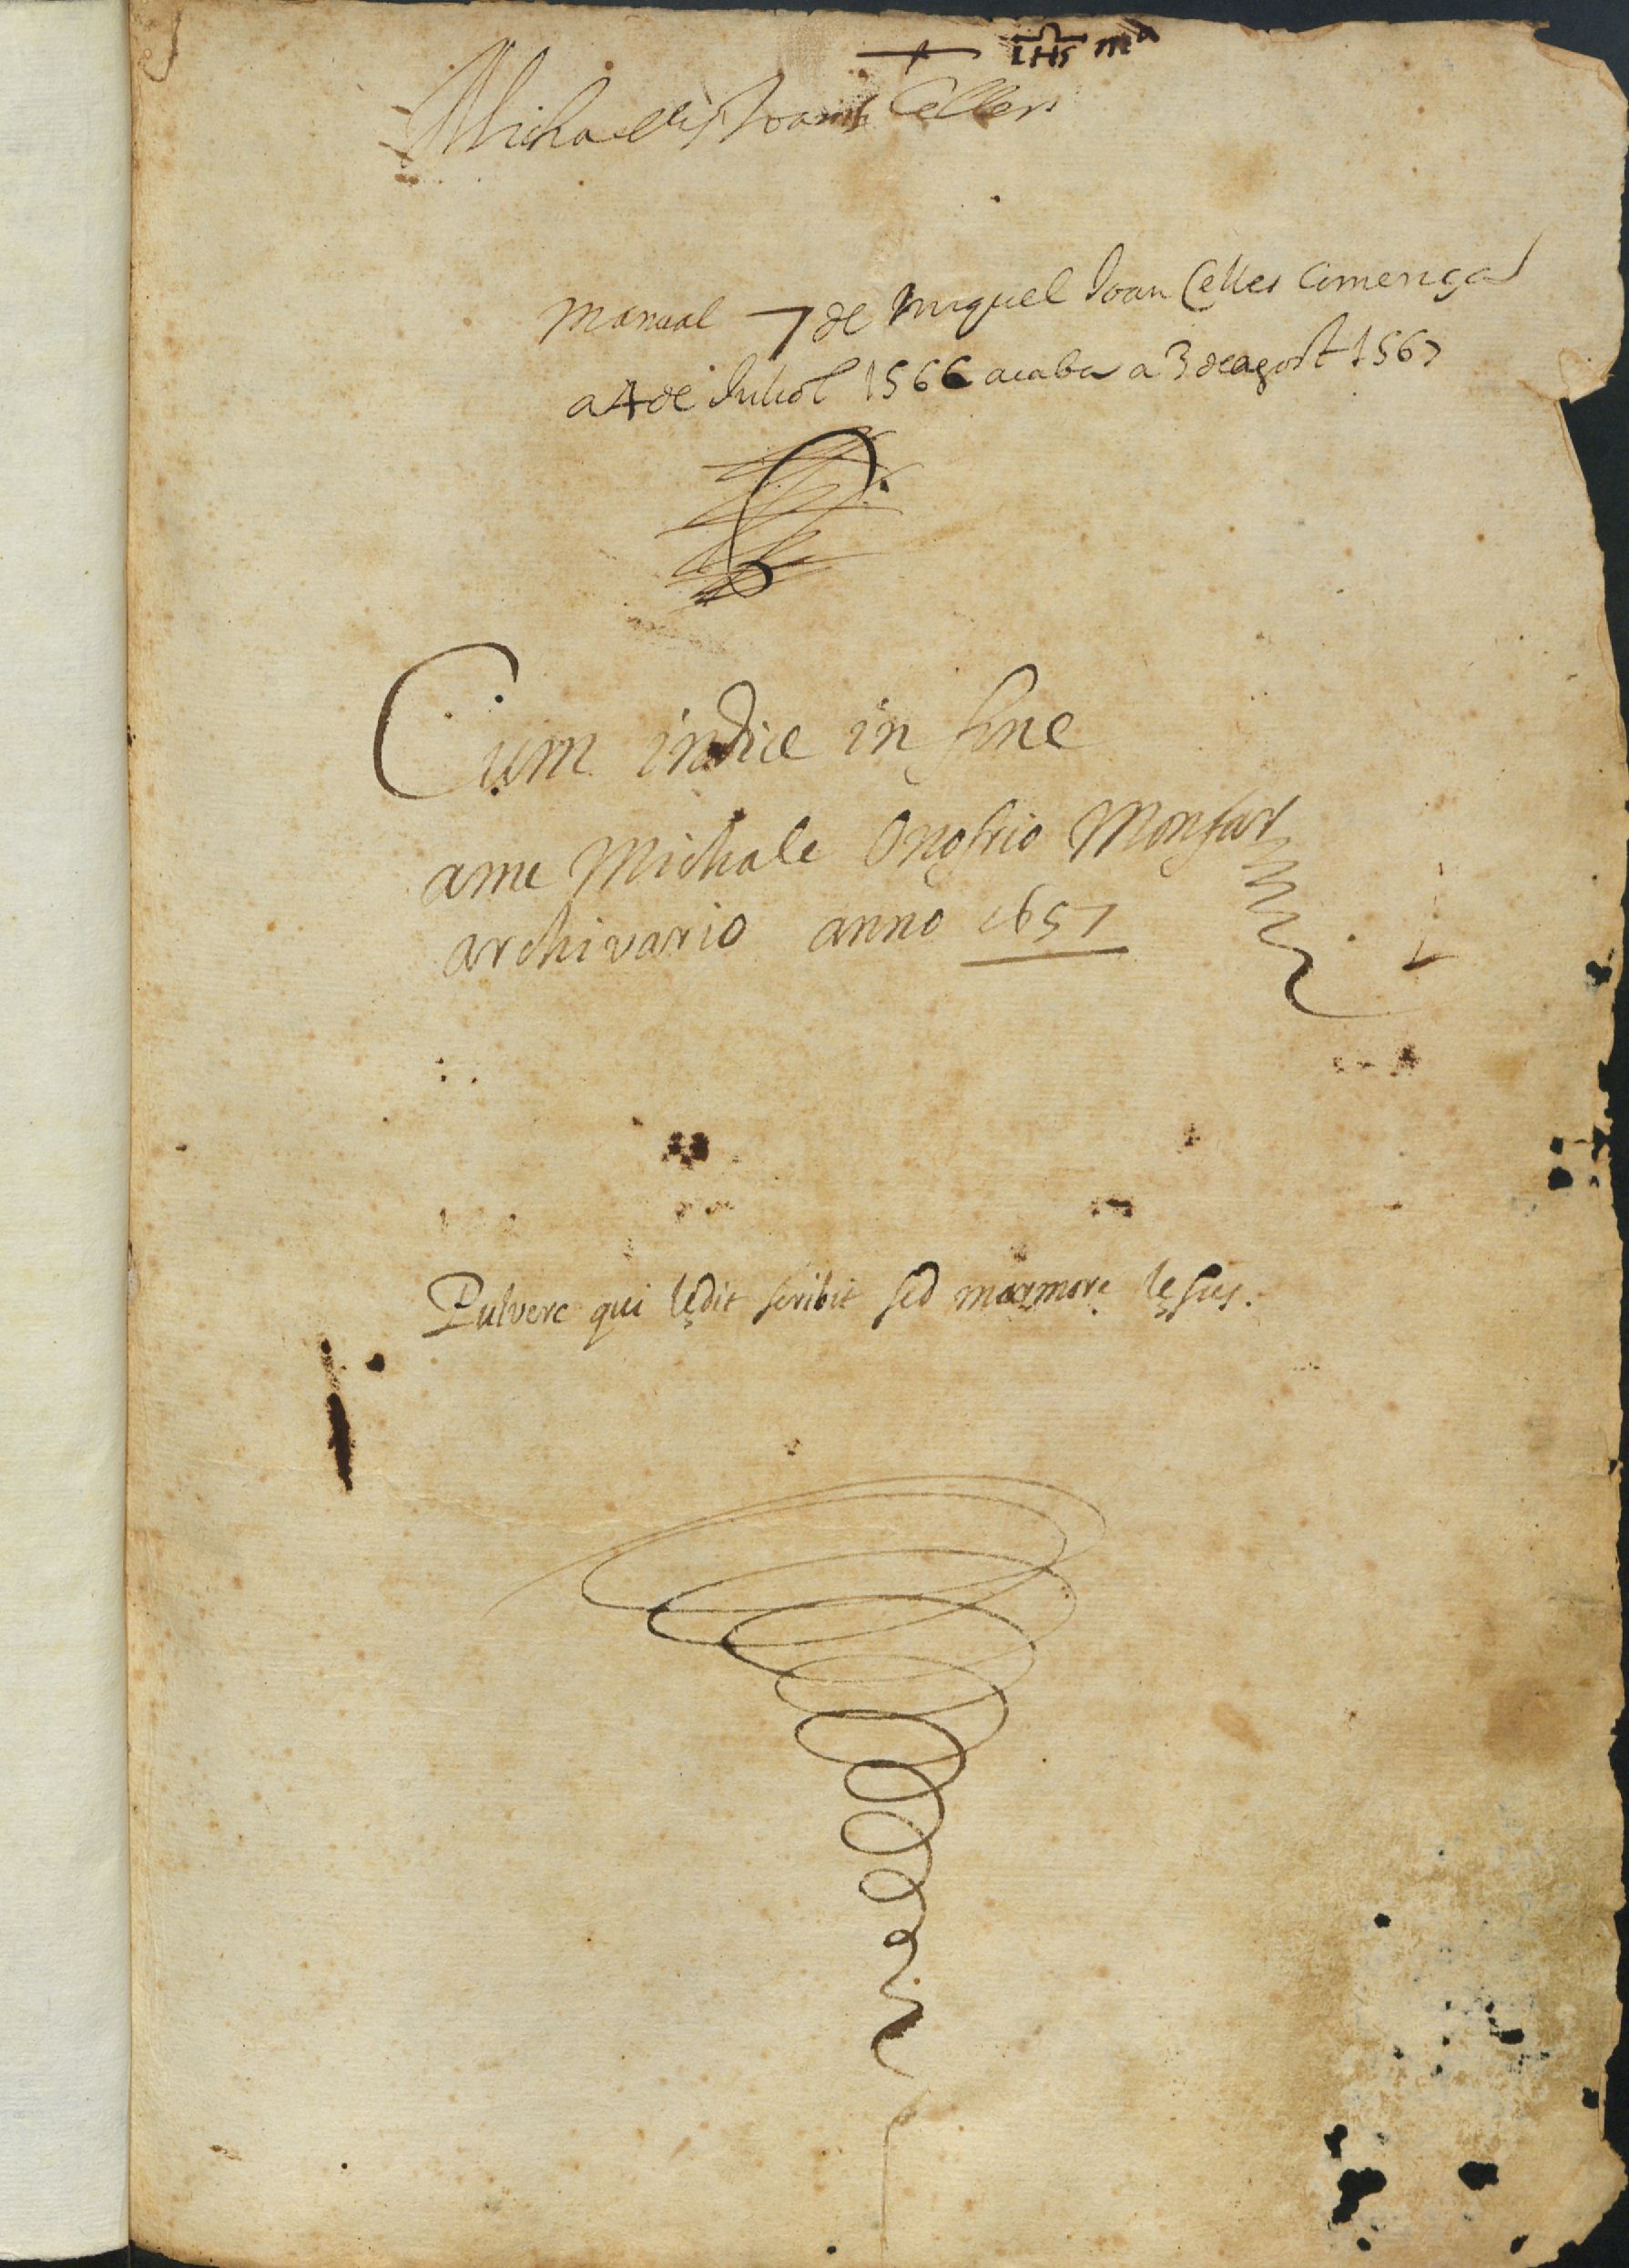 IHS ma
Michaelis Joanis Celles
Manual 7 de Miquel Joan Celles Comença
a 4 de Juliol 1566 acaba a 3 de agost 1567
Cum indice in fine
a me Michale Onofrio Monfar
archivario anno 1657
Pulvere qui lędit scribit sed marmore lęsus.